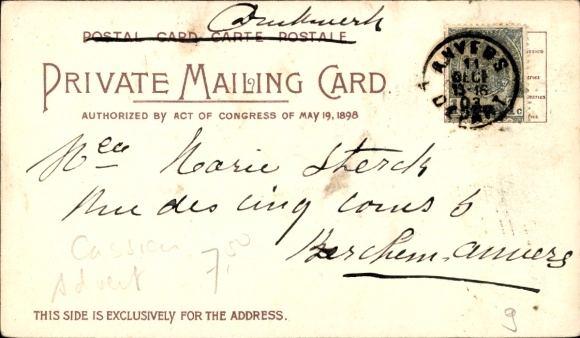 Drukwerk
POSTAL CARD CARTE POSTALE
PRIVATE MAILING CARD.
AUTHORIZED BY ACT OF CONGRESS OF MAY 19, 1898
ANVERS
11
DECE
15-16
03
DÉPART
Marie Sterck
Rue des cinq cours 6
Berchem-Anvers
7,50
Advert
THIS SIDE IS EXCLUSIVELY FOR THE ADDRESS.
9